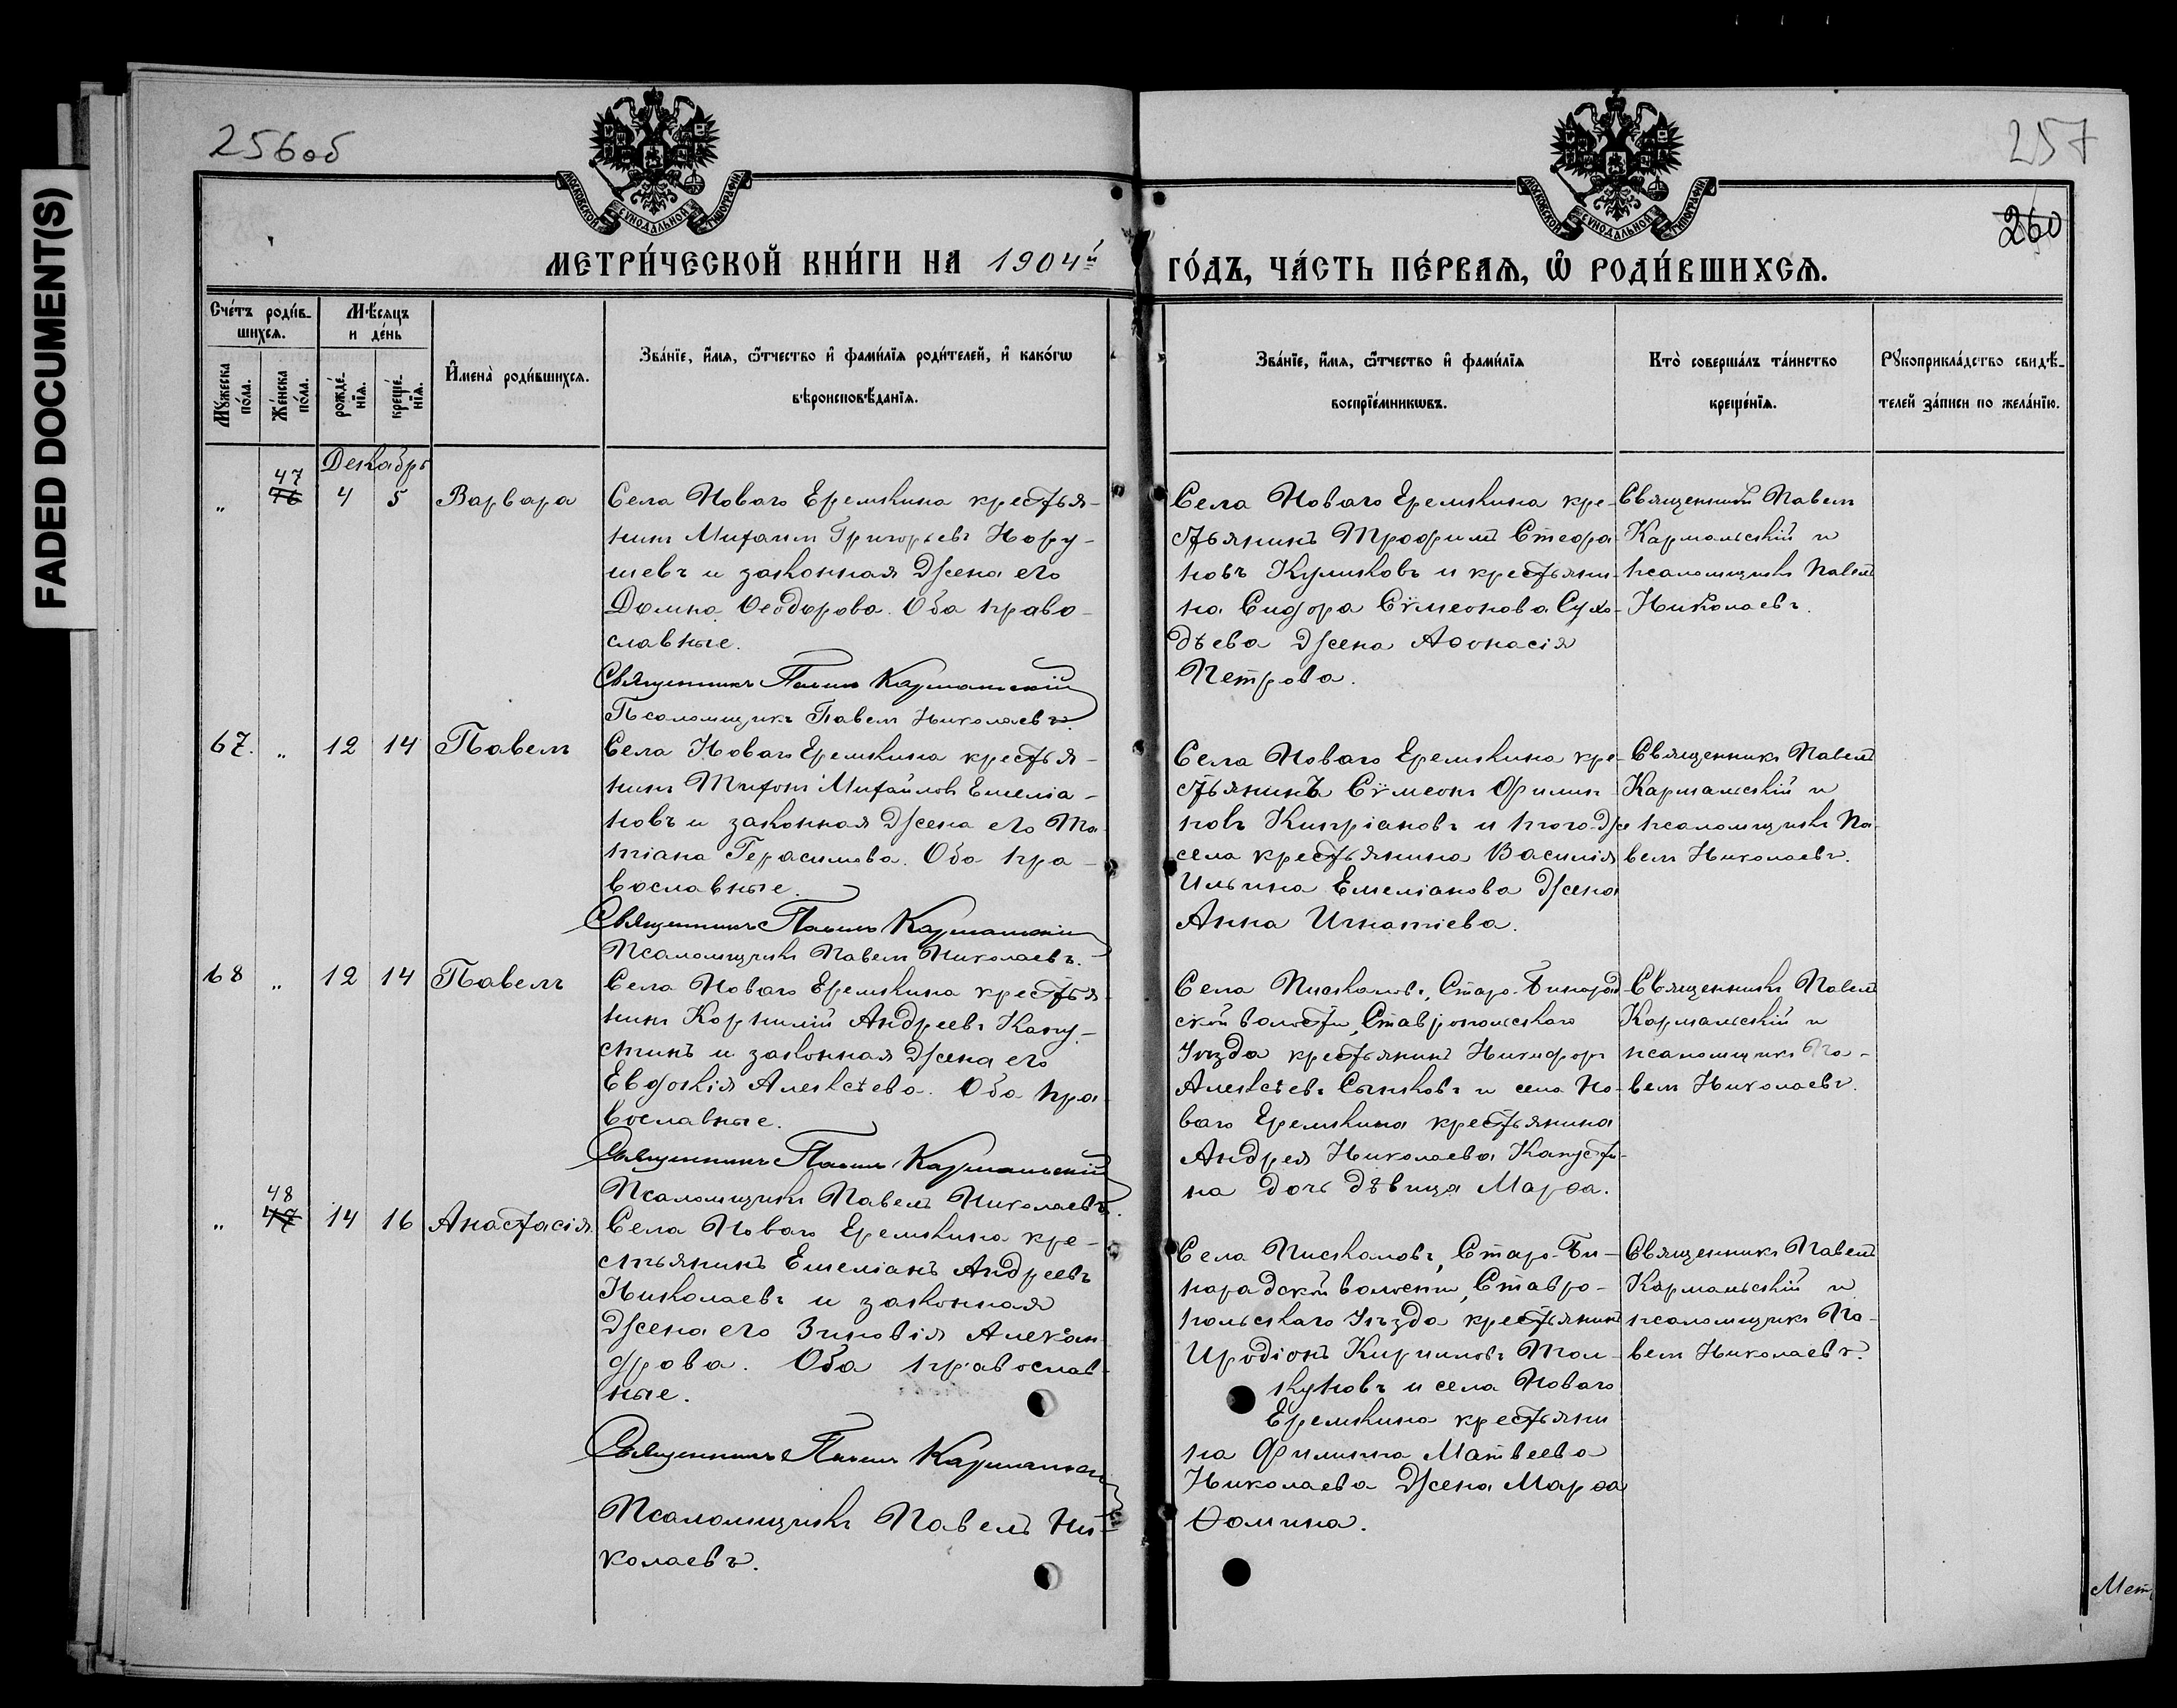 FADED DOCUMENT(S)
256об
257
260
МОСКОВСКОЙ СУНОДАЛЬНОЙ ТИПОГРАФІИ
МОСКОВСКОЙ СУНОДАЛЬНОЙ ТИПОГРАФІИ
МЕТРИ́ЧЕСКОЙ КНИ́ГИ НА 1904й
ГО́ДЪ, ЧА́СТЬ ПЕ́РВАЯ, Ѿ РОДИ́ВШИХСЯ.
Сче́тъ роди́в-
шихся.
Мѣ́сяцъ
и де́нь
Му́жеска
по́ла.
Же́нска
по́ла.
рожде́-
нїя.
креще́-
нїя.
И҆мена̀ роди́вшихся.
Зва́нїе, и҆́мя, ѻ҆́тчество и҆ фами́лїя роди́телей, и҆ како́гѡ
вѣроисповѣ́данїя.
Зва́нїе, и҆́мя, ѻ҆́тчество и҆ фами́лїя
воспрїе́мникѡвъ.
Кто̀ соверша́лъ та́инство
креще́нїя.
Рꙋкоприкла́дство свидѣ́-
телей за́писи по жела́нїю.
Декабрь
47
„ 46 4 5 Варвара
Села Новаго Еремкина крестья-
нинъ Михаилъ Григорьевъ Нору-
шевъ и законная жена его
Домна Ѳеодорова. Оба право-
славные.
Священникъ Павелъ Кармальскій
Псаломщикъ Павелъ Николаевъ
Села Новаго Еремкина кре-
стьянинъ Трофимъ Стефа-
новъ Куликовъ и крестьяни-
на Сидора Сѵмеонова Сухо-
дѣева жена Аѳонасія
Петрова.
Священникъ Павелъ
Кармальскій и
псаломщикъ Павелъ
Николаевъ.
67. „ 12 14 Павелъ
Села Новаго Еремкина крестья-
нинъ Тихонъ Михайловъ Емеліа-
новъ и законная жена его Та-
тіана Герасимова. Оба пра-
вославные.
Священникъ Павелъ Кармальскій
Псаломщикъ Павелъ Николаевъ.
Села Новаго Еремкина кре-
стьянинъ Сѵмеонъ Филип-
повъ Кипріановъ и того-же
села крестьянина Василія
Ильина Емеліанова жена
Анна Игнатіева.
Священникъ Павелъ
Кармальскій и
псаломщикъ Па-
велъ Николаевъ.
68 „ 12 14 Павелъ
Села Новаго Еремкина крестья-
нинъ Корнилій Андреевъ Капу-
стинъ и законная жена его
Евдокія Алексѣева. Оба пра-
вославные.
Священникъ Павелъ Кармальскій
Псаломщикъ Павелъ Николаевъ.
Села Пискаловъ, Старо-Бинарад-
ской волости, Ставропольскаго
Уѣзда крестьянинъ Никифоръ
Алексѣевъ и села Но-
ваго Еремкина крестьянина
Андрея Николаева Капусти-
на дочь дѣвица Марѳа.
Священникъ Павелъ
Кармальскій и
псаломщикъ Па-
велъ Николаевъ.
48
„ 47 14 16 Анастасія
Села Новаго Еремкина кре-
стьянинъ Емеліанъ Андреевъ
Николаевъ и законная
жена его Зиновія Алексан-
дрова. Оба православ-
ные.
Священникъ Павелъ Кармальскій
Псаломщикъ Павелъ Ни-
колаевъ.
Села Пискаловъ, Старо-Би-
нарадской волости, Ставро-
польскаго Уѣзда крестьянинъ
Иродіонъ Кирилловъ Тол-
куновъ и села Новаго
Еремкина крестьяни
на Филиппа Матвеева
Николаева жена Марѳа
Ѳомина.
Священникъ Павелъ
Кармальскій и
псаломщикъ Па-
велъ Николаевъ.
Мет